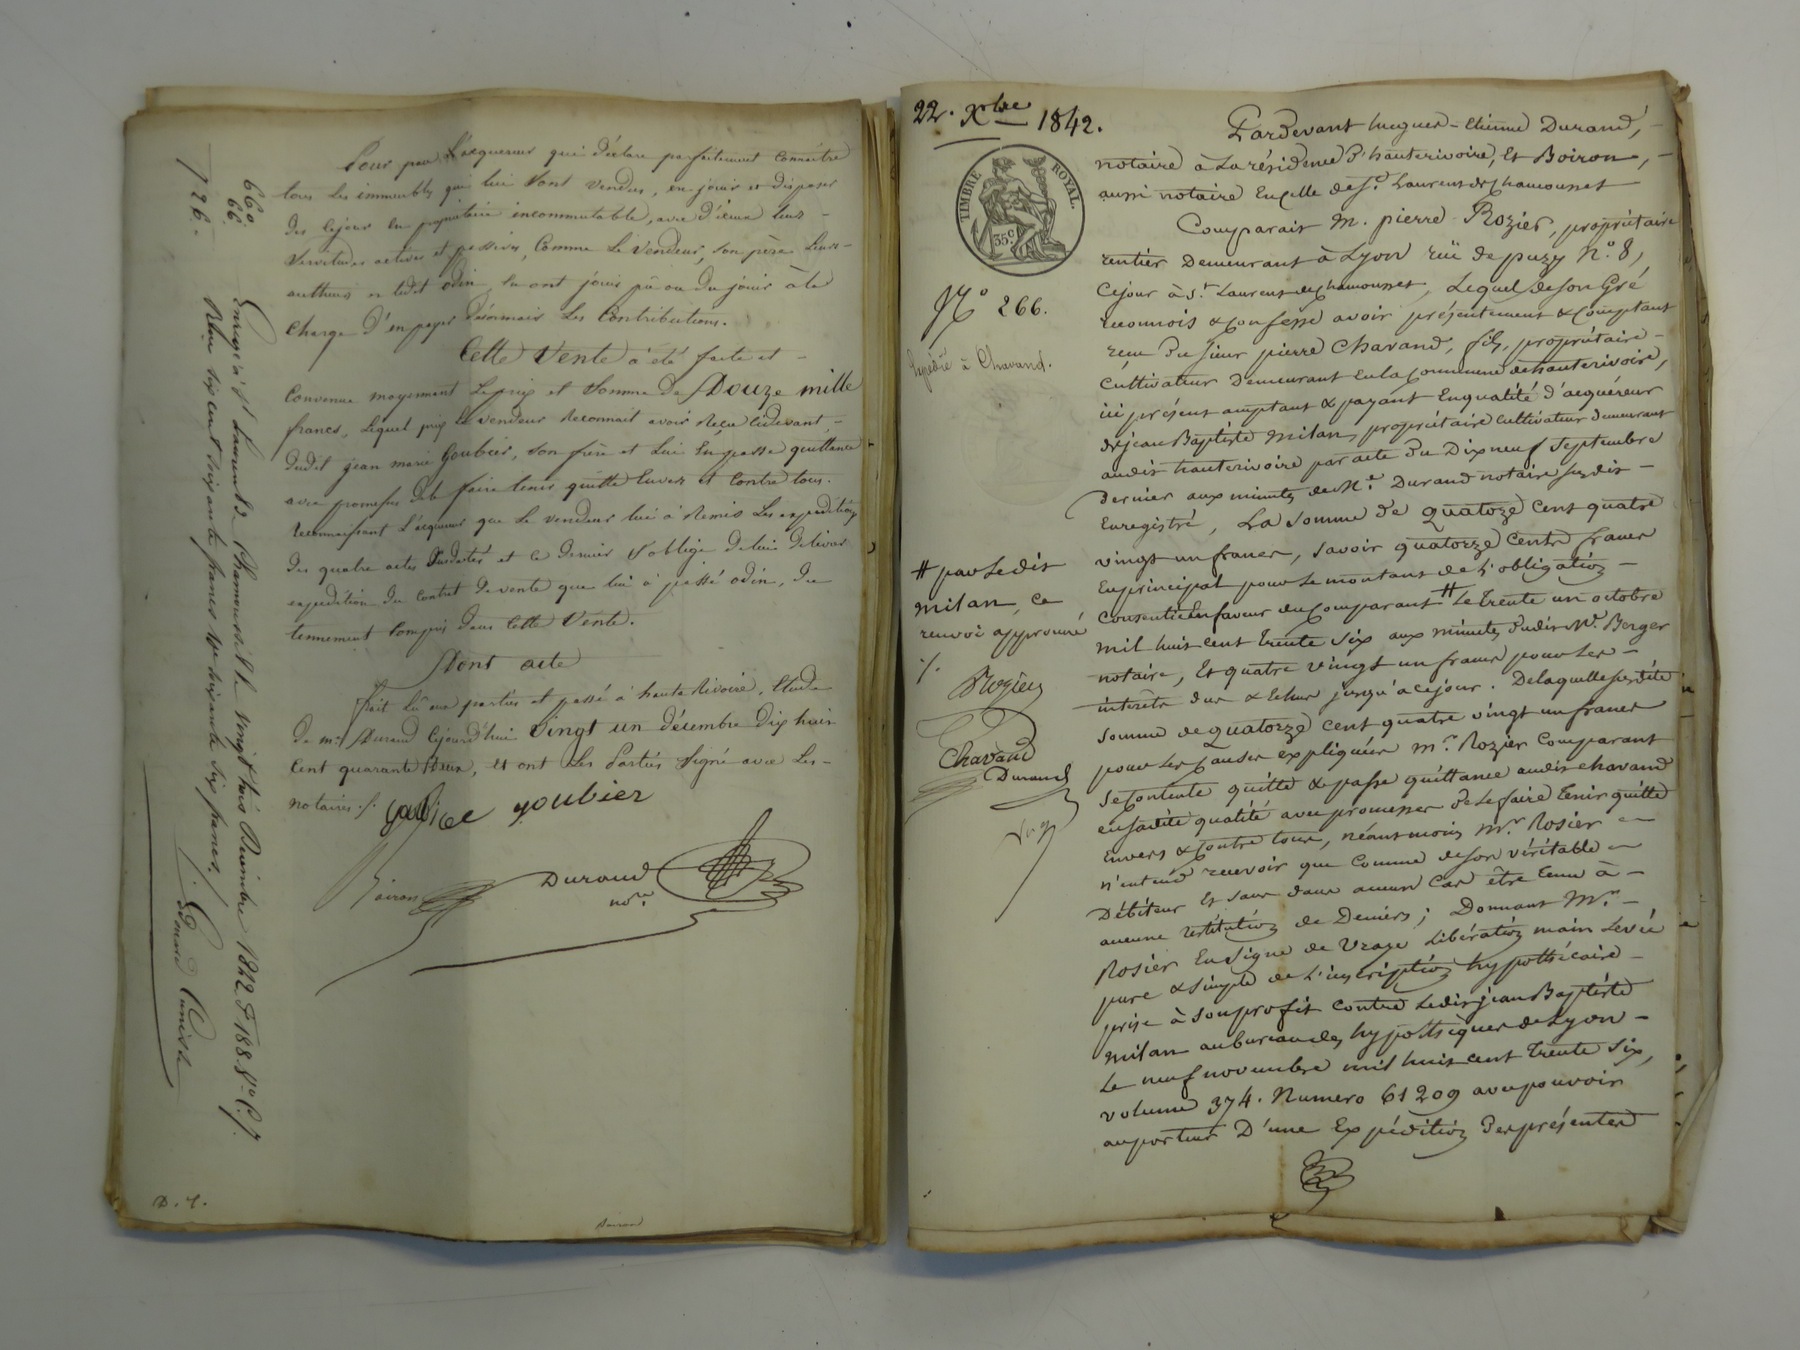 Pour par l'acquereur qui déclare parfaitement connaître
tous les immeubles qui lui sont vendus, en jouir et disposer
dès ce jour en propriétaire incommutable, avec d'iceux leurs -
servitudes actives et passives, comme le vendeur, son père leurs -
autheurs et ledit odin, en ont joui pû ou du jouir à la
charge d'en payer désormais les contributions.
Cette Vente a été faite et -
convenue moyennant le prix et somme de Douze mille
francs, lequel prix le vendeur reconnait avoir reçu cidevant, -
dudit jean marie Goubier, son frère et lui en passe quittance
avec promesse de faire tenir quitte envers et contre tous.
reconnaissant l'acquereur que le vendeur lui a remis les expéditions
des quatre actes susdatés et ce dernier s'oblige de lui délivrer
expédition du contrat de vente que lui a passé odin, du
tennement compris dans cette Vente.
Dont acte
fait lû aux parties et passé à haute Rivoire, Etude
de mᵉ Durand cejourd'hui vingt un décembre dix huit
cent quarante deux, et ont les Parties signé avec les -
notaires ./.
goubier
Boiron
Durand
noʳᵉ
660.
66.
726.
Enregistré à Sᵗ Laurent de Chamousset le vingt trois Décembre 1842 Fº 188 Vº C. 7.
Reçu six cent soixante francs 10e soixante six francs./.
D. 7.
Durand
22. Xbre 1842.
TIMBRE ROYAL.
35 c
Nº 266.
Expédié à Chavand.
Pardevant hugues-Etienne Durand, -
notaire à La résidence d'hauterivoire, Et Boiron, -
aussi notaire En celle de Sᵗ Laurent de Chamousset
Comparait M. pierre Rozier, propriétaire
rentier Demeurant à Lyon rüe de puzy Nº 8,
Cejour à Sᵗ Laurent de Chamousset, Lequel de son Gré
reconnois & Confesse avoir présentement & Comptant
reçu du sieur pierre Chavand, fils, propriétaire -
Cultivateur Demeurant En la Commune de hauterivoire,
ici présent acceptant & payant En qualité d'acquéreur
de jean Baptiste Milan, propriétaire cultivateur demeurant
audit hauterivoire par acte du Dix neuf Septembre
dernier aux minutes de Mᵉ Durand notaire susdit -
Enregistré, La somme de quatorze Cent quatre
vingt un francs, savoir quatorze Cents francs
En principal pour le montant de L'obligation -
consentie En faveur du Comparant # Le trente un octobre
mil huit cent trente six aux minutes dudit Mᵉ Berger
notaire, Et quatre vingt un francs pour les -
intérêts dus & échus jusqu'à ce jour. De laquelle susdite
somme de quatorze Cent quatre vingt un francs
pour les causes expliquées Mʳ Rozier Comparant
se Contente quitte & passe quittance audit chavand
en sadite qualité avec promesse de le faire tenir quitte
Envers & Contre tous, néanmoins Mʳ Rosier
n'entend recevoir que Comme de son véritable
Débiteur Et sans dans aucun Cas être tenu à -
aucune restitution de Deniers; Donnant Mʳ -
Rosier En signe de Vraye Libération main Levée
pure & simple de L'inscription hypothécaire -
prise à son profit Contre ledit jean Baptiste
milan au bureau des hypothèques de Lyon -
Le neuf novembre mil huit cent trente six,
volume 374. Numero 61209 avec pouvoir
au porteur D'une Expédition Des présentes
# par Ledit
milan, ce
renvoi approuvé
./.
Rozier
Chavand
Durand